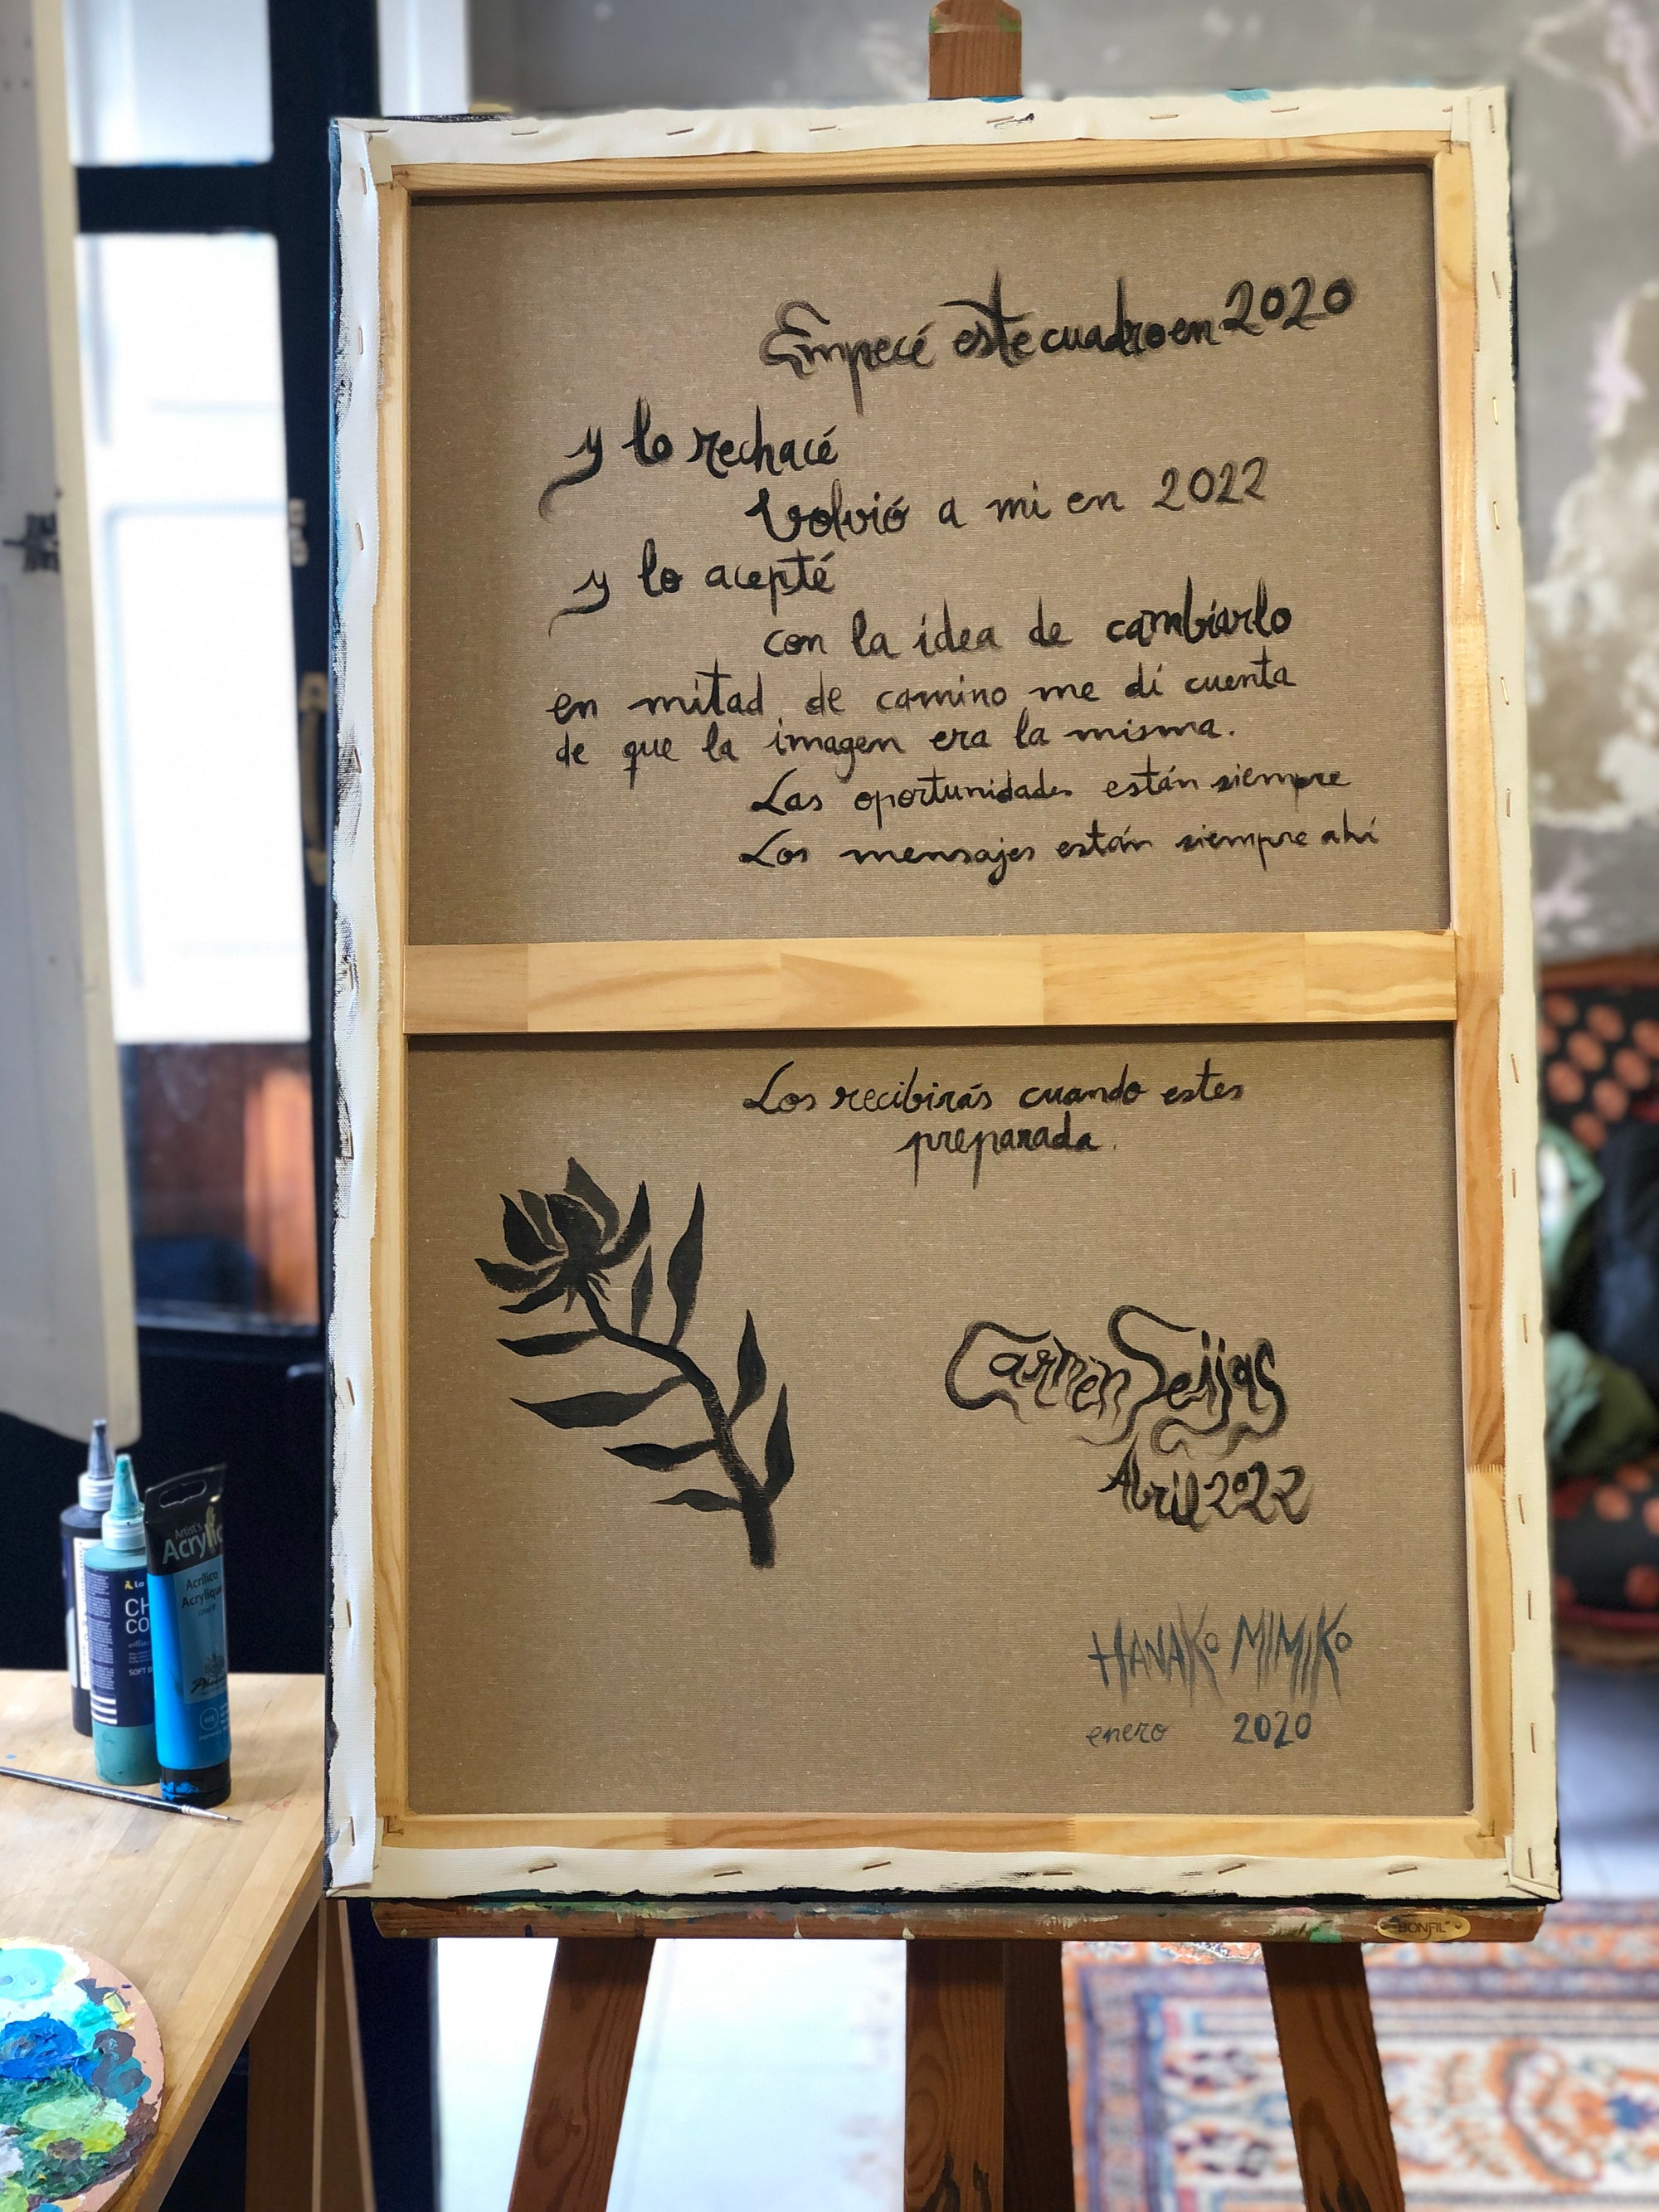 Empecé este cuadro en 2020
y lo rechacé
Volvió a mi en 2022
y lo acepté
con la idea de cambiarlo
en mitad de camino me di cuenta
de que la imagen era la misma.
Las oportunidades están siempre
Los mensajes están siempre ahí
Los recibirás cuando estes
preparada.
Carmen Seijas
Abril 2022
HANAKO MIMIKO
enero 2020
BONFIL
Artist's
Acrylic
Acrílico
Acrylique
CH
CO
SOFT